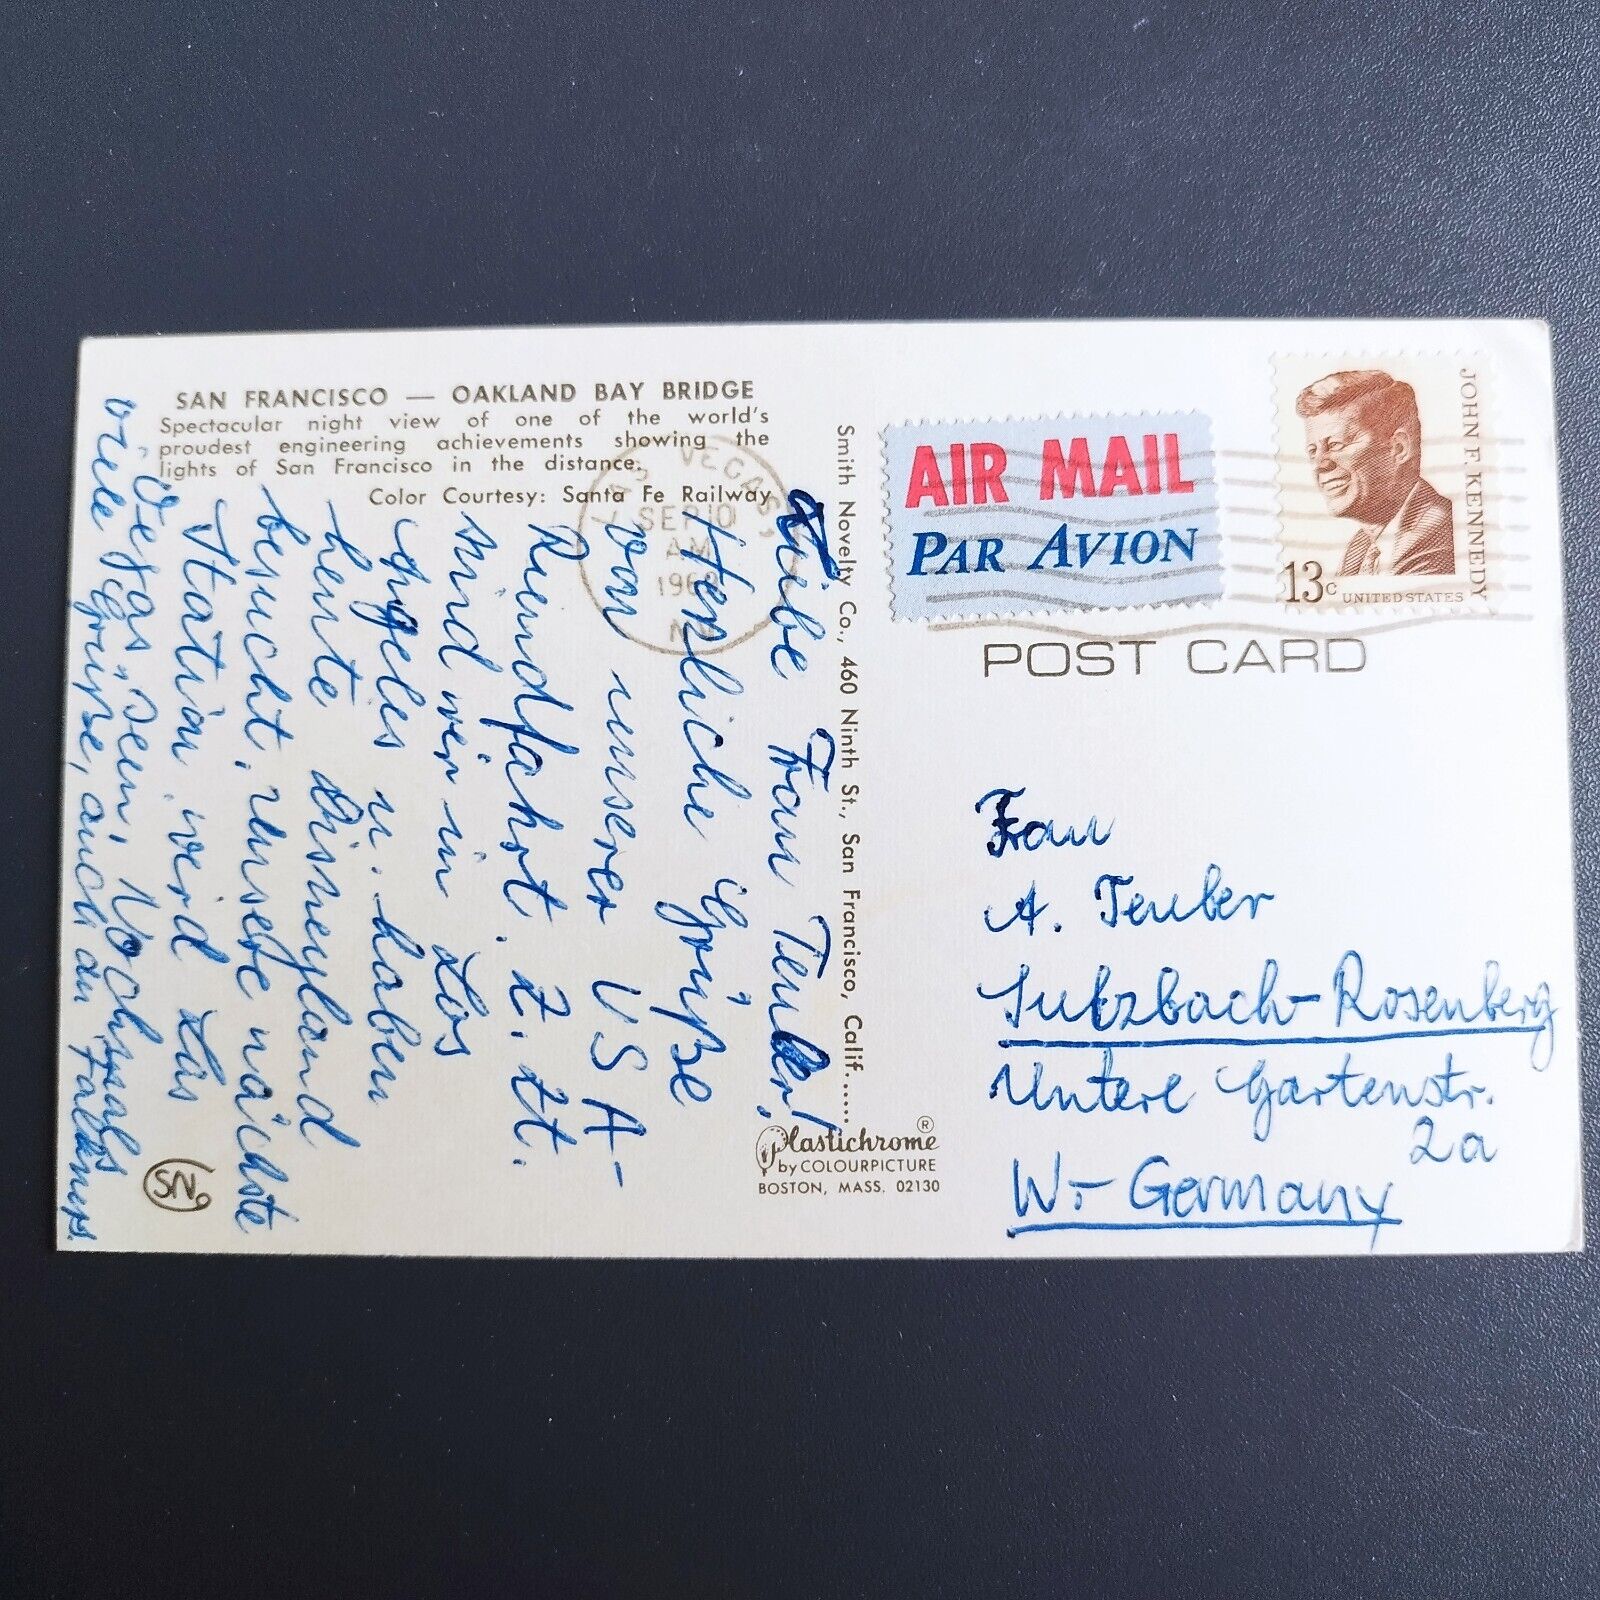 SAN FRANCISCO — OAKLAND BAY BRIDGE
Spectacular night view of one of the world's
proudest engineering achievements showing the
lights of San Francisco in the distance.
Color Courtesy: Santa Fe Railway
VEGAS,
SEP 10
AM
1968
Liebe Frau Teuber!
Herzliche Grüße
von unserer USA-
Rundfahrt. Z. Zt.
sind wir in Los
Angeles u. haben
heute Disneyland
besucht, unsere nächste
Station wird Las
Vegas sein. Nochmals
viele Grüße, auch an
Smith Novelty Co., 460 Ninth St., San Francisco, Calif.....
Plastichrome®
by COLOURPICTURE
BOSTON, MASS. 02130
SN
AIR MAIL
PAR AVION
JOHN F. KENNEDY
13c UNITED STATES
POST CARD
Frau
A. Teuber
Sulzbach-Rosenberg
Untere Gartenstr.
2a
W.-Germany